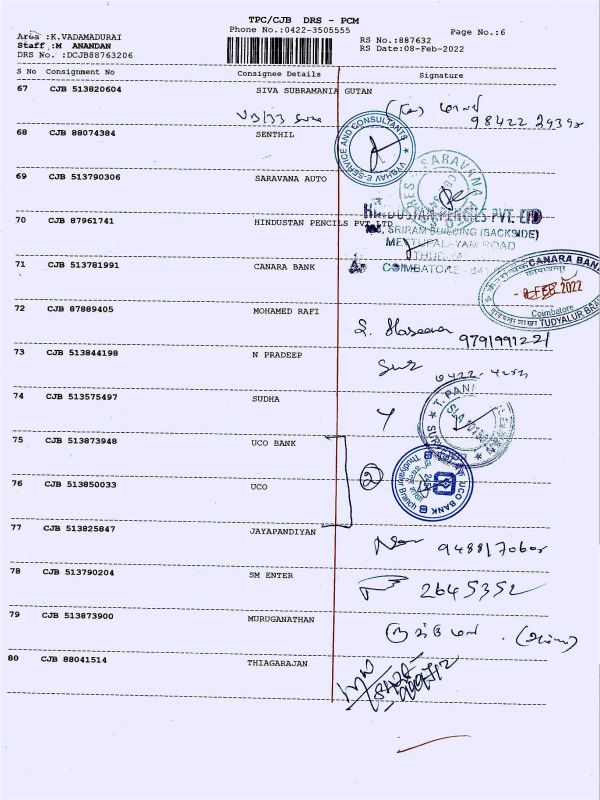 TPC/CJB DRS - PCM
Phone No.:0422-3505555
Page No.:6
Area :K.VADAMADURAI
Staff :M ANANDAN
DRS No. :DCJB88763206
RS No.:887632
RS Date:08-Feb-2022
S No Consignment No Consignee Details Signature
67 CJB 513820604 SIVA SUBRAMANIA GUTAN
68 CJB 88074384 SENTHIL
VYBHAV E-SERVICE AND CONSULTANTS
69 CJB 513790306 SARAVANA AUTO
SARAVANA
70 CJB 87961741 HINDUSTAN PENCILS PVT LTD
HINDUSTAN PENCILS PVT. LTD
SRIRAM BUILDING (BACKSIDE)
ROAD
COIMBATORE
71 CJB 513781991 CANARA BANK
CANARA BANK
8 FEB 2022
Coimbatore
TUDYALUR
72 CJB 87889405 MOHAMED RAFI
9791991221
73 CJB 513844198 N PRADEEP
74 CJB 513575497 SUDHA
75 CJB 513873948 UCO BANK
76 CJB 513850033 UCO
2
UCO BANK
Branch
77 CJB 513825847 JAYAPANDIYAN
78 CJB 513790204 SM ENTER
2645352
79 CJB 513873900 MURUGANATHAN
80 CJB 88041514 THIAGARAJAN